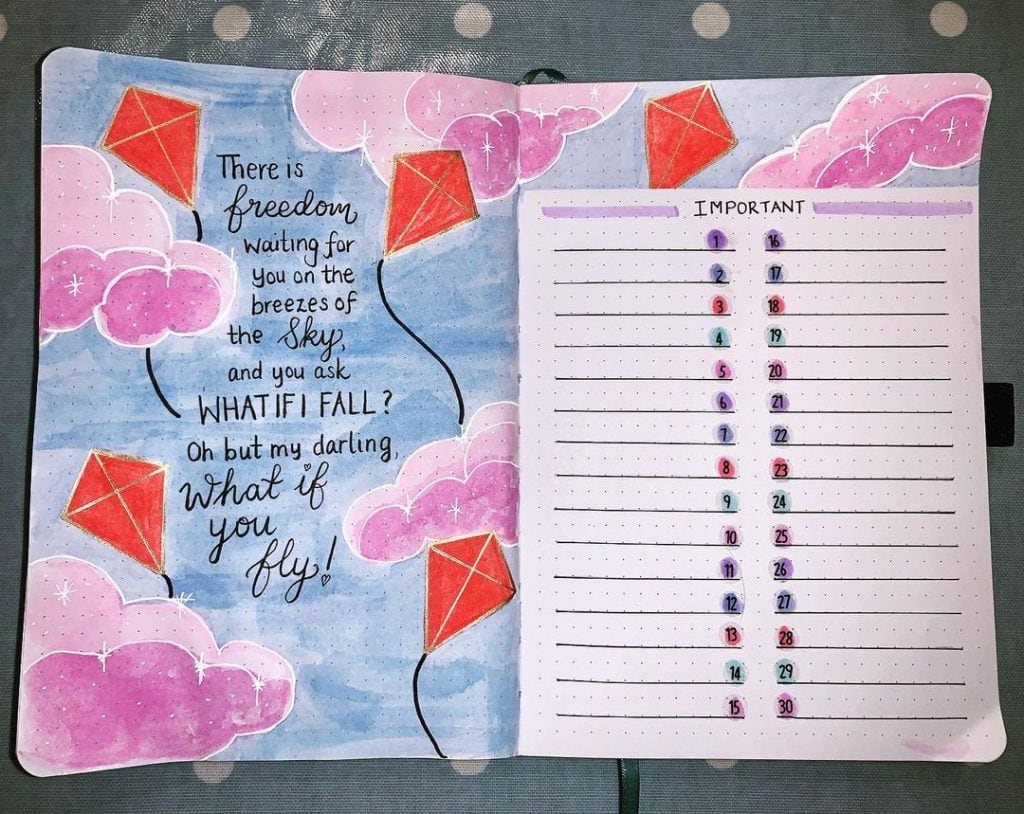 There is
freedom
waiting for
you on the
breezes of
the Sky,
and you ask
WHAT IF I FALL?
Oh but my darling,
What if
you
fly!
IMPORTANT
1 16
2 17
3 18
4 19
5 20
6 21
7 22
8 23
9 24
10 25
11 26
12 27
13 28
14 29
15 30